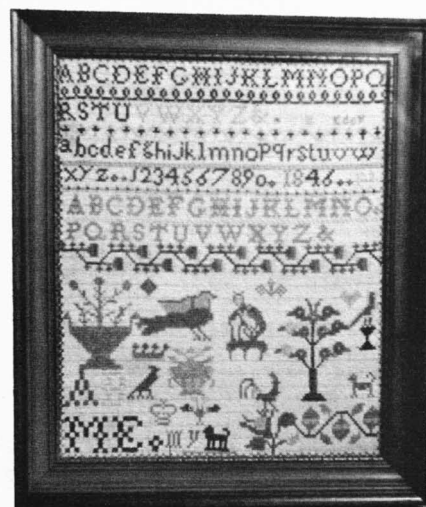 ABCDEFGHIJKLMNOPQ
RSTUVWXYZ&.
abcdefghijklmnopqrstuvw
xyz..1234567890.1846..
ABCDEFGHIJKLMNO.
PQRSTUVWXYZ&
ME.
my